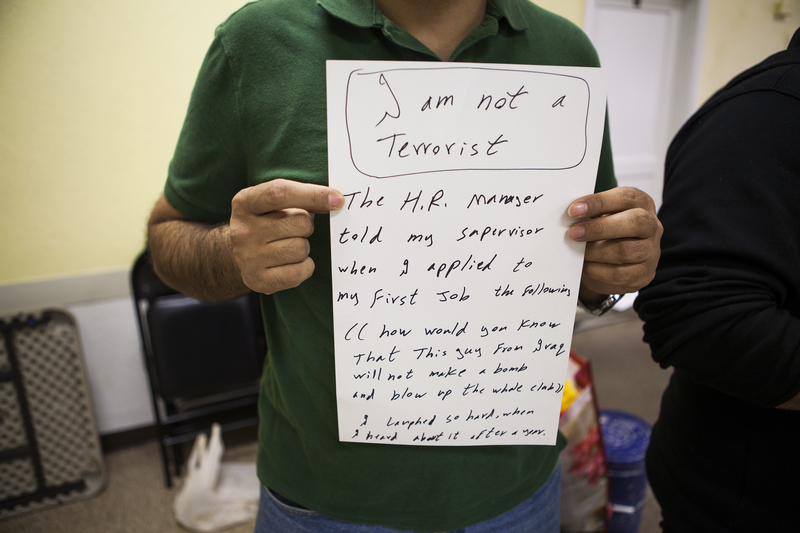 I am not a
Terrorist
The H.R. Manager
told my supervisor
when I applied to
my First Job the Following
(( how would you know
That This guy From Iraq
will not make a bomb
and blow up the whole club))
I laughed so hard, when
I heard about it after a year.